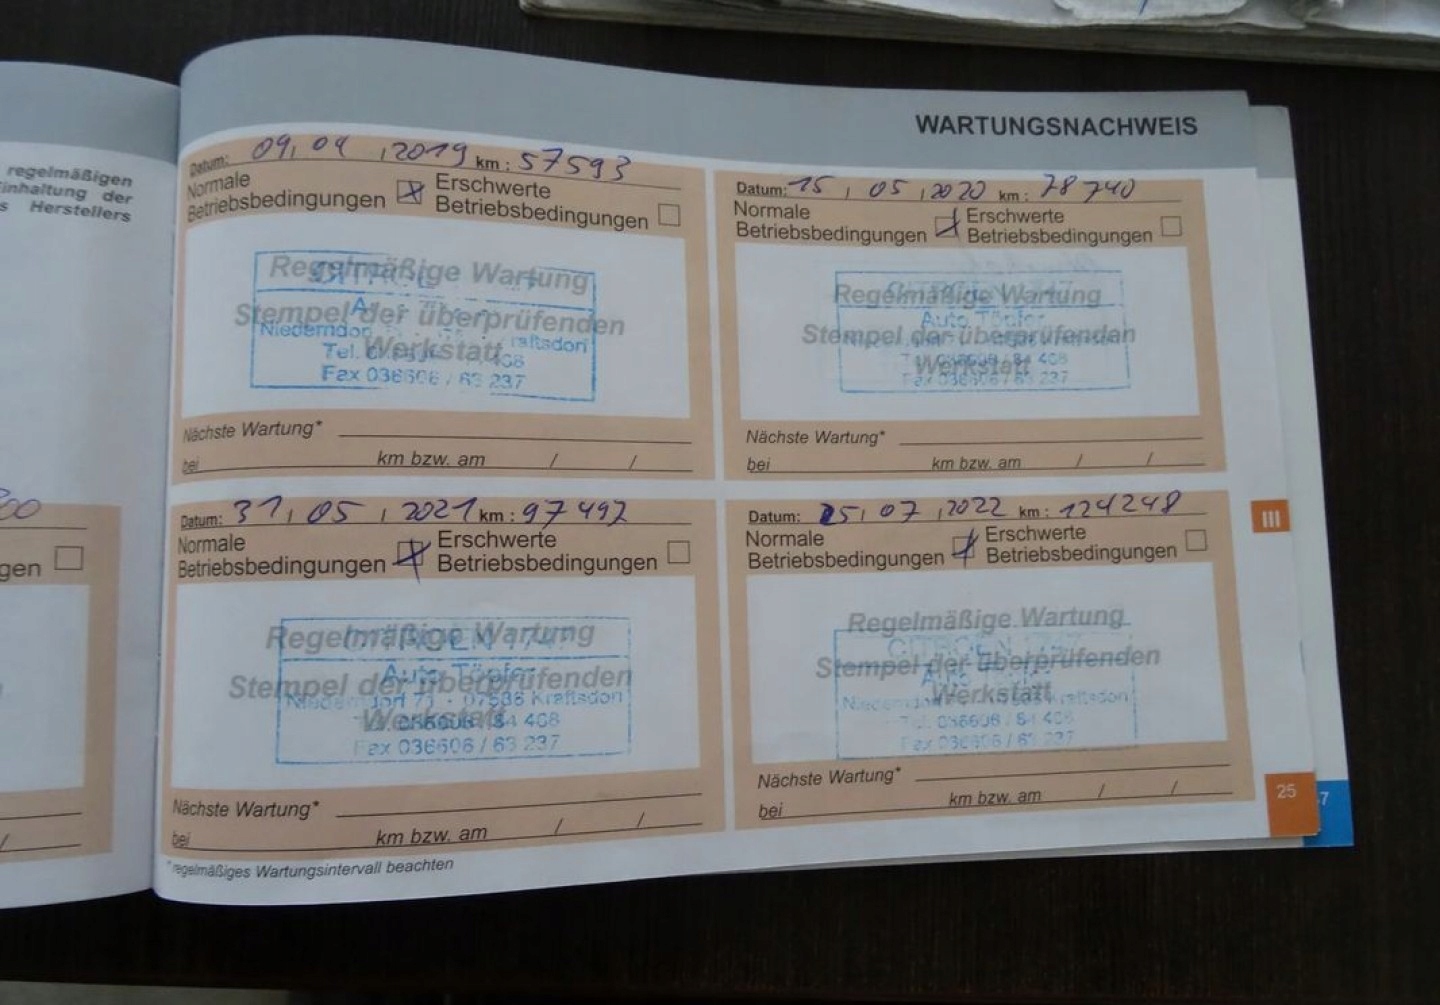 regelmäßigen
Einhaltung der
s Herstellers
gen
WARTUNGSNACHWEIS
Datum: 09, 04, 2019 km: 57593
Normale
Betriebsbedingungen
Erschwerte
Betriebsbedingungen
Regelmäßige Wartung
Stempel der überprüfenden
Werkstatt
Niederndor
Kraftsdorf
Tel.
Fax 036606 / 63 237
Nächste Wartung*
bei km bzw. am / /
Datum: 15, 05, 2020 km: 78740
Normale
Betriebsbedingungen
Erschwerte
Betriebsbedingungen
Regelmäßige Wartung
Stempel der überprüfenden
Werkstatt
Auto Töpfer
036606 / 84 408
Fax 036606 / 63 237
Nächste Wartung*
bei km bzw. am / /
Datum: 31, 05, 2021 km: 97492
Normale
Betriebsbedingungen
Erschwerte
Betriebsbedingungen
Regelmäßige Wartung
Stempel der überprüfenden
Werkstatt
CITROEN
Auto Töpfer
Niederndorf 71 - 07586 Kraftsdorf
036606 / 84 408
Fax 036606 / 63 237
Nächste Wartung*
bei km bzw. am / /
Datum: 25, 07, 2022 km: 124248
Normale
Betriebsbedingungen
Erschwerte
Betriebsbedingungen
Regelmäßige Wartung
Stempel der überprüfenden
Werkstatt
CITROEN
Auto Töpfer
Kraftsdorf
Tel. 036606 / 84 408
Fax 036606 / 63 237
Nächste Wartung*
bei km bzw. am / /
*regelmäßiges Wartungsintervall beachten
III
25